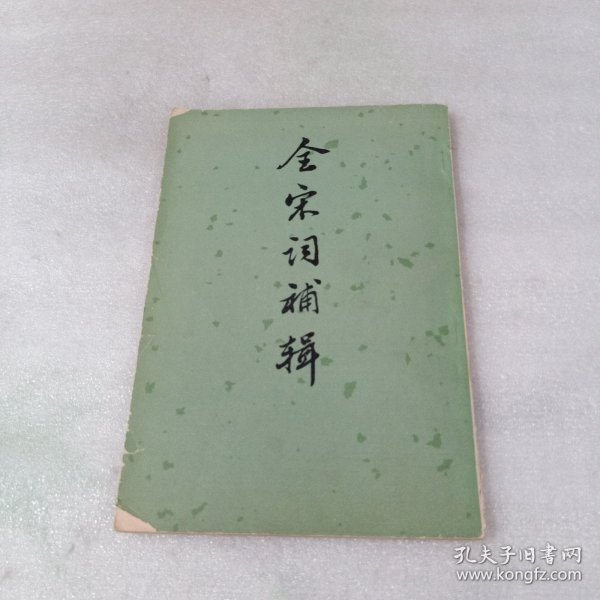 全宋词補辑
孔夫子旧書网
www.kongfz.com